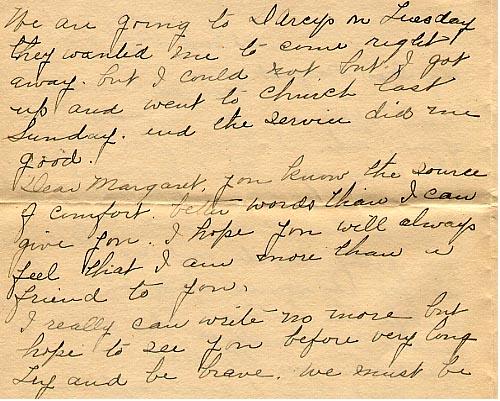 We are going to Darcys on Tuesday
they wanted me to come right
away. but I could not but I got
up and went to church last
Sunday. and the service did me
good.
Dear Margaret, you know the source
of comfort. better words than I can
give you. I hope you will always
feel that I am more than a
friend to you.
I really can write no more but
hope to see you before very long
Try and be brave. we must be